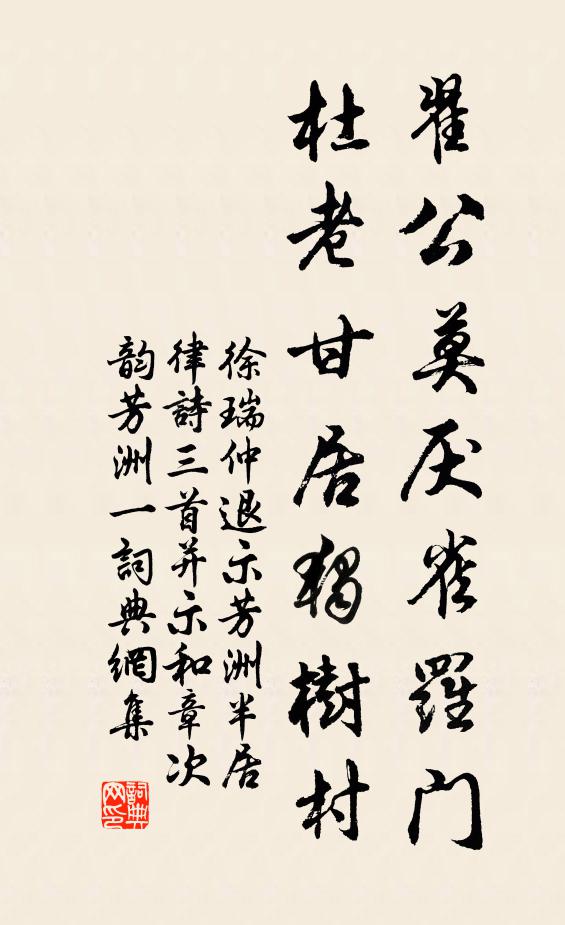 翟公莫厌雀羅門
杜老甘居獨樹村
徐瑞仲退示芳洲半居
律詩三首并示和章次
韵芳洲一詞典網集
詞典
网印